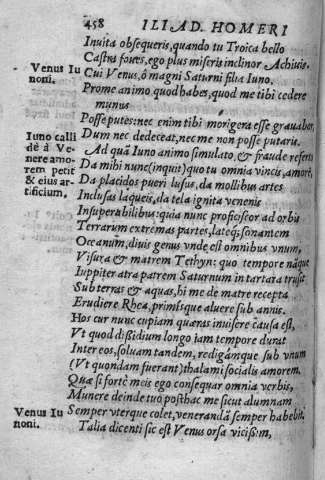 458 ILIAD. HOMERI
Invita obsequeris, quando tu Troica bello
Castra foues, ego plus miseris inclinor Achiuis.
Venus Iu
noni.
Cui Venus, ô magni Saturni filia Iuno.
Prome animo quod habes, quod me tibi cedere
munus
Posse putes: nec enim tibi morigera esse grauabor,
Dum nec dedeceat, nec me non posse putaris.
Iuno calli
dè à Ve
nere amo
rem petit
& eius ar-
tificium.
Ad quā Iuno animo simulato, & fraude referta
Da mihi nunc (inquit) quo tu omnia vincis, amorē,
Da placidos pueri lusus, da mollibus artes
Inclusas laqueis, da tela ignita venenis
Insuperabilibus: quia nunc proficiscor ad orbis
Terrarum extremas partes, lateq; sonantem
Oceanum, diuis genus vnde est omnibus vnum,
Visura & matrem Tethyn: quo tempore nāque
Iuppiter atra patrem Saturnum in tartara trusit
Sub terras & aquas, hi me de matre recepta
Erudiere Rhea, primisque aluere sub annis.
Hos cur nunc cupiam quæras inuisere causa est,
Vt quod dissidium longo iam tempore durat
Inter eos, soluam tandem, redigámque sub vnum
(Vt quondam fuerant) thalami socialis amorem.
Quæ si fortè meis ego consequar omnia verbis,
Munere deinde tuo posthac me sicut alumnam
Semper vterque colet, venerandā semper habebit.
Venus Iu
noni.
Talia dicenti sic est Venus orsa vicissim,